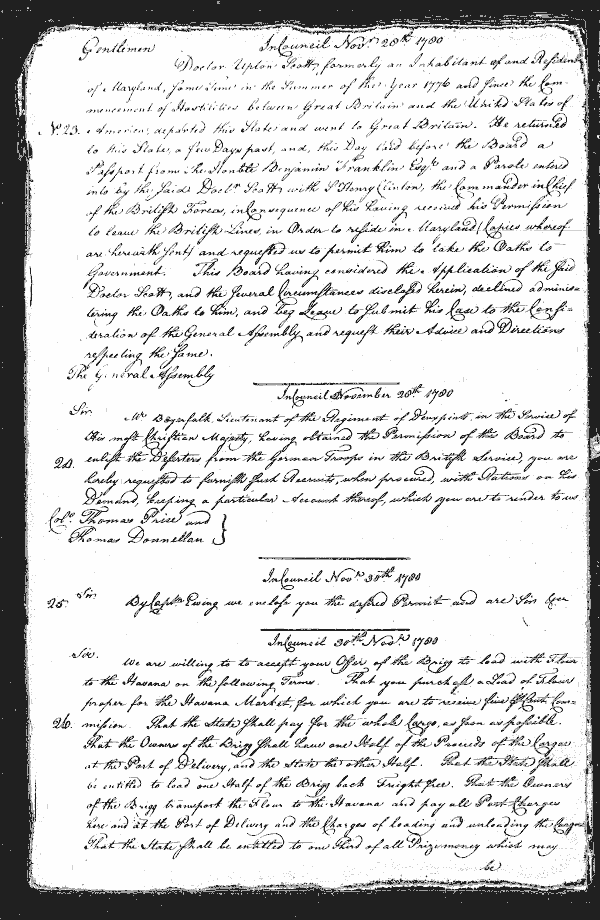 Gentlemen In Council Novr 28th 1780
Doctor Upton Scott, formerly an Inhabitant of and Resident
of Maryland, some time in the Summer of the Year 1776 and since the Com-
mencement of Hostilities between Great Britain and the United States of
No. 23. America, departed this State and went to Great Britain. He returned
to this State, a few Days past, and, this Day laid before the Board a
Passport from the Honble Benjamin Franklin Esqr. and a Parole entered
into by the said Doctr Scott, with Sr Henry Clinton, the Commander in Chief
of the British Forces, in Consequence of his having received his Permission
to leave the British Lines, in Order to reside in Maryland (Copies whereof
are herewith sent) and requested us to permit him to take the Oaths to
Government. This Board having considered the Application of the said
Doctor Scott, and the several Circumstances disclosed herein, declined adminis-
tering the Oaths to him, and beg Leave to submit his Case to the Consi-
deration of the General Assembly and request their Advice and Directions
respecting the same.
The General Assembly
In Council November 28th 1780
Sir. Mr Lieutenant of the Regiment of in the Service of
His most Christian Majesty, having obtained the Permission of this Board to
24. enlist the Deserters from the German Troops in the British Service, you are
hereby requested to furnish such Recruits, when procured, with Rations on his
Demand, keeping a particular Account thereof, which you are to render to us
Colo. Thomas Price and }
Thomas Donnellan }
In Council Novr 30th 1780
25. Sir. By Captn Ewing we enclose you the desired Permit and are Sir
In Council 30th Novr. 1780
Sir.
We are willing to to accept your Offer of the Brigg to load with Flour
to the Havana on the following Terms. That you purchase a Load of Flour
proper for the Havana Market, for which you are to receive five Pr Cent Com-
26. mission. That the State shall pay for the whole Cargo, as soon as possible.
That the Owners of the Brigg shall have one Half of the Proceeds of the Cargo
at the Port of Delivery, and the State the other Half. That the State shall
be entitled to load one Half of the Brigg back Freight free. That the Owners
of the Brigg transport the Flour to the Havana and pay all Port Charges
here and at the Port of Delivery and the Charges of loading and unloading the Cargoe
That the State shall be entitled to one third of all Prizemoney which may
be